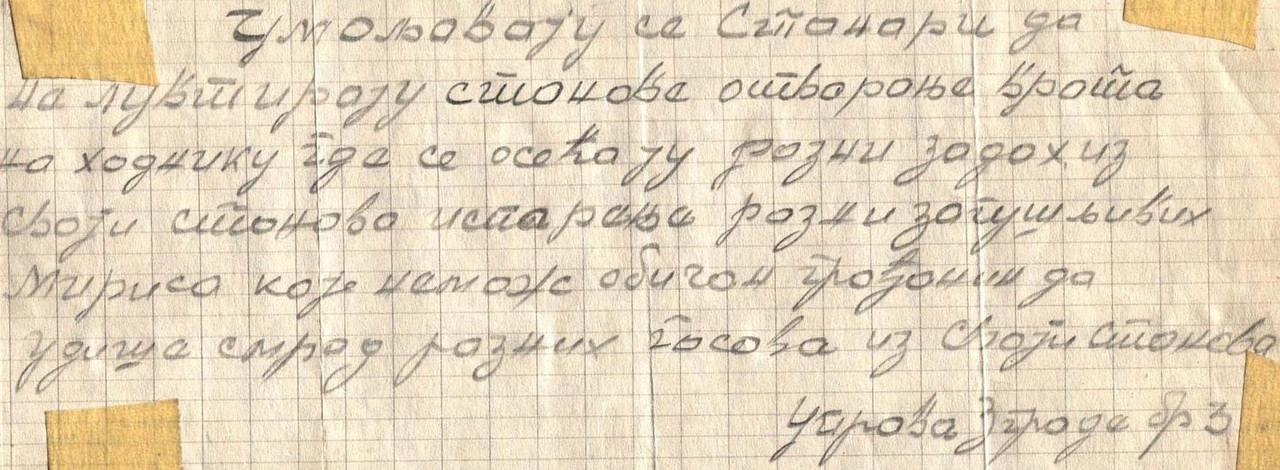 Умољавају се Станари да
не лувтирају станове отворање врата
на ходнику где се осећају разни задох из
својти станова испарење разни загушљивих
мириса које неможе обичан грађанин да
удише смрад разних гасова из својти станова
Управа Зграде бр 3